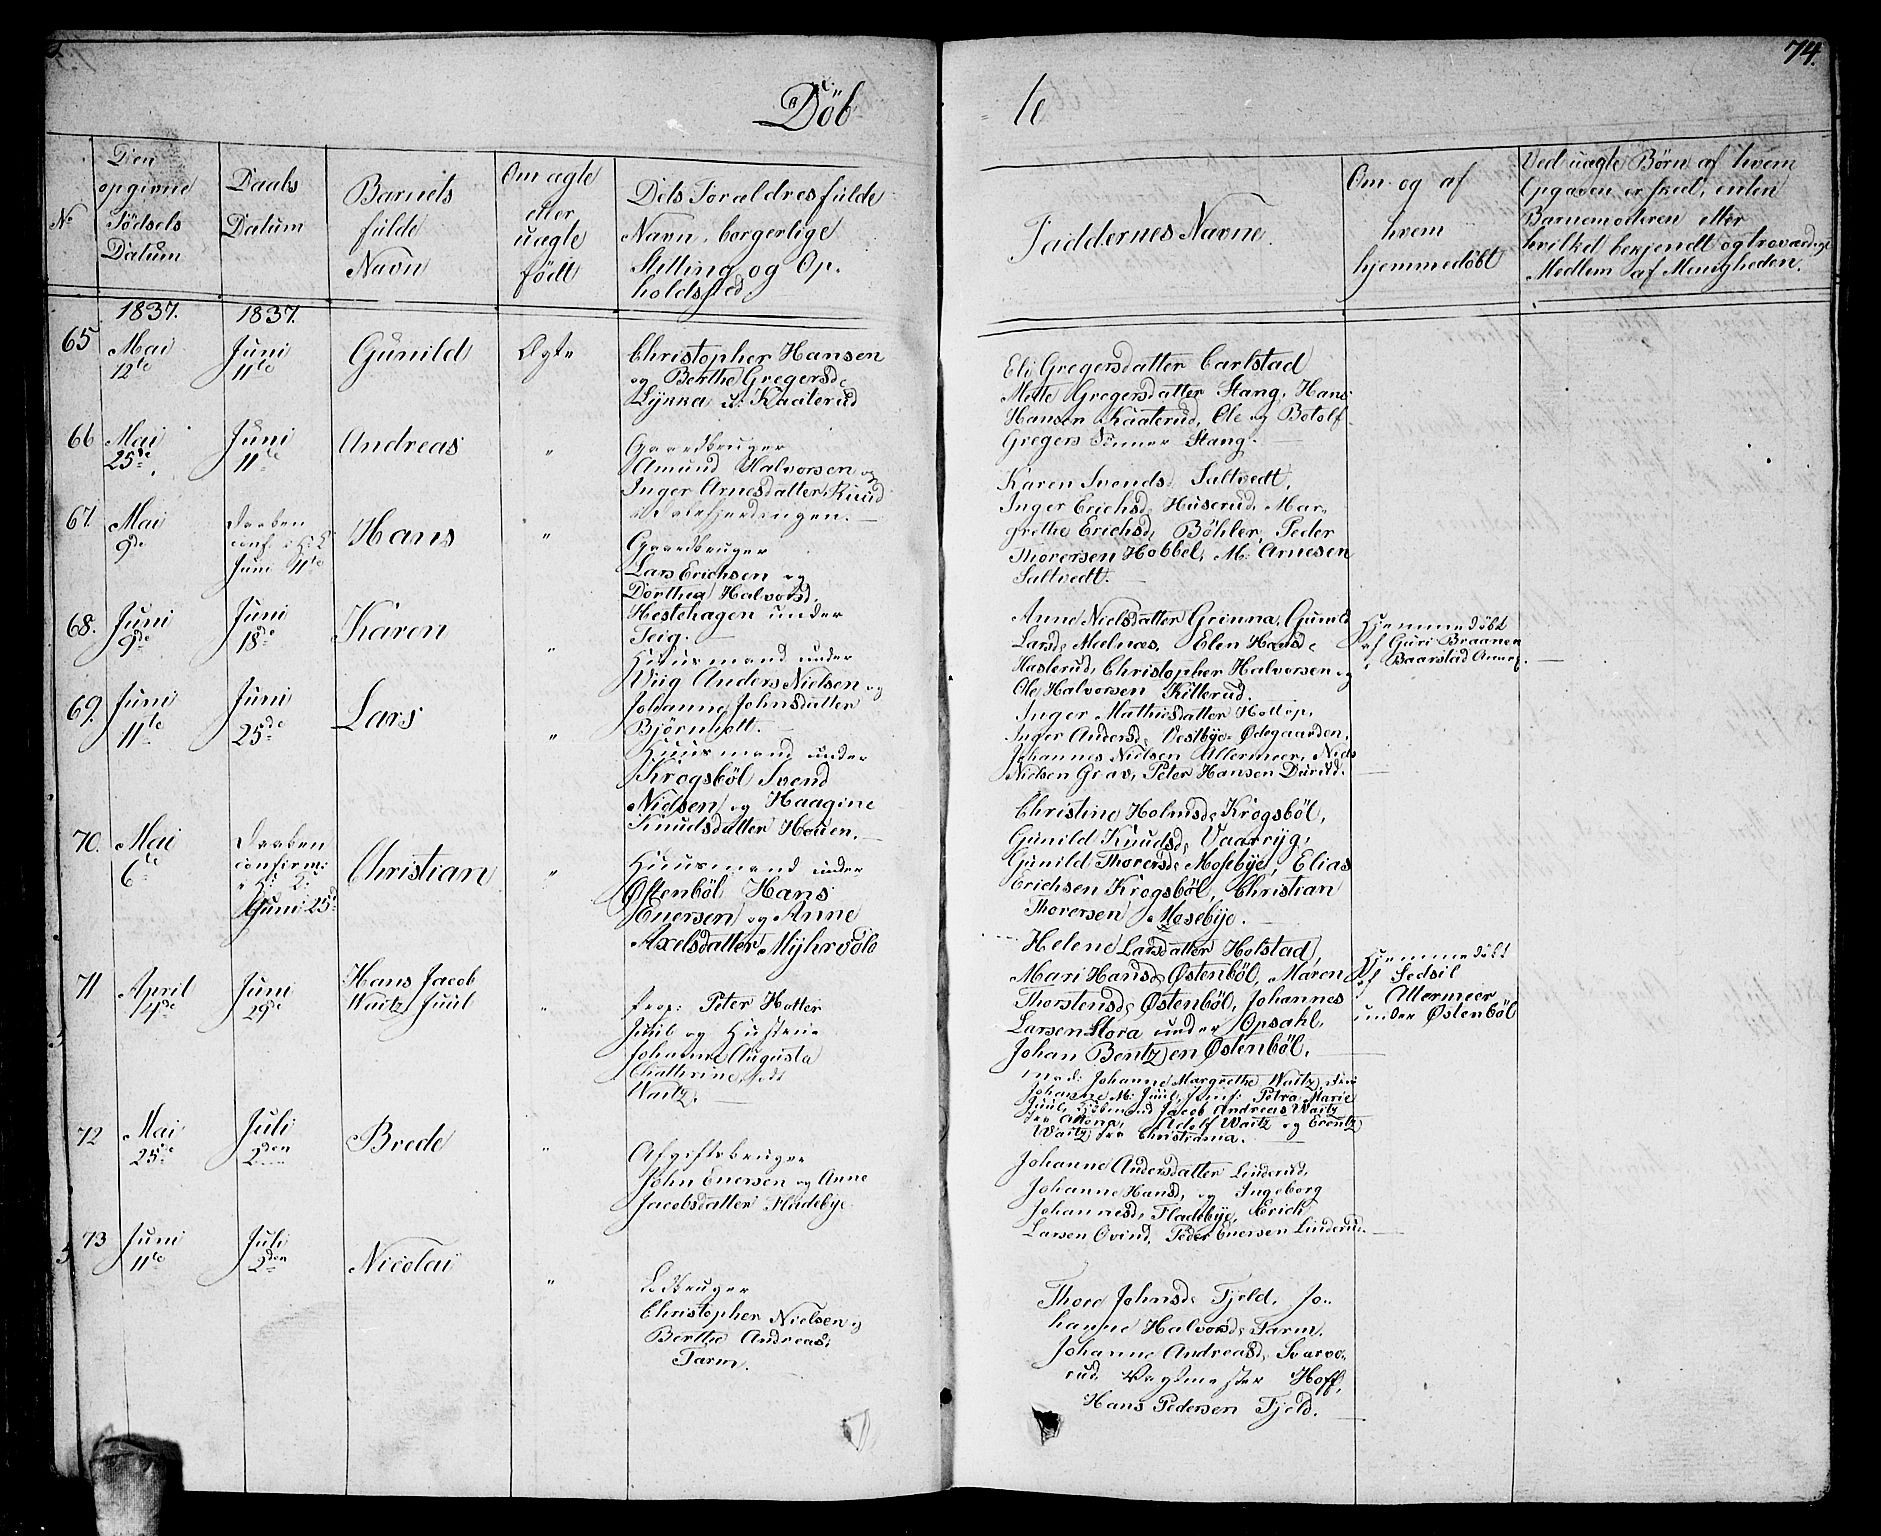 74.
Döb-
te
No
Den
opgivne
Födsels
Datum
Daabs
Datum
Barnets
fulde
Navn
Om ægte
eller
uægte
født
Dets Forældres fulde
Navn, borgerlige
Stilling og Op-
holdssted.
Faddernes Navne.
Om og af
hvem
hjemmedöbt
Ved uægte Børn af hvem
Opgaven er skeet, enten
Barnemoderen eller
hvilket bekjendt og troværdigt
Medlem af Menigheden.
1837.
1837.
65
Mai
12te
Juni
11te
Gunild
Ægte
Christopher Hansen
og Berthe Gregersd.
Lykka u: Kaaterud
Eli Gregersdatter Carlstad
Mette Gregersdatter Stang, Hans
Hansen Kaaterud, Ole og Botolf
Gregers Sønner Stang.
66
Mai
25de
Juni
11te
Andreas
"
Gaardbruger
Amund Halvorsen og
Inger Arnesdatter Ruud
Karen Svends. Saltvedt,
Inger Erichsd. Huserud, Mar-
grethe Erichsd. Böhler, Peder
Thorersen Hobbel, M: Arnesen
Saltvedt.
67.
Mai
9de
Daaben
conf. i H: K
Juni 11te
Hans
"
Gaardbruger
Lars Erichsen og
Dorthea Halvorsd.
Hestehagen under
Teig.
Anne Nielsdatter Grinna, Gunild
Larsd. Mielnæs, Elen Hansd.
Haslerud, Christopher Halvorsen og
Ole Halvorsen Kitterud.
68.
Juni
9de
Juni
18de
Karen
"
Huusmand under
Wiig Anders Nielsen og
Johanne Johnsdatter
Bjørnholt.
Inger Mathisdatter Holtop,
Inger Andersd. Vestbye Ødegaarden,
Johannes Nielsen Allermeer, Niels
Nielsen Grav, Peter Hansen Durud.
Hjemmedøbt
af Guri Braanen
Baarstad Annex.
69.
Juni
11te
Juni
25de
Lars
"
Huusmand under
Krogsböl Svend
Nielsen og Haagine
Knudsdatter Houen.
Christine Holmsd. Krogsböl,
Gunild Knudsd. Vaarryg,
Gunild Thorersd. Mosebye, Elias
Erichsen Krogsböl, Christian
Thorersen Mosebye.
70.
Mai
6te
Daaben
confirm:
i H: K:
Juni 25de
Christian
"
Huusmand under
Østenböl Hans
Enersen og Anne
Axelsdatter Myhrvold
Helene Larsdatter Holstad,
Mari Hansd. Østenböl, Maren
Thorstensd. Østenböl, Johannes
Larsen Stora under Opsahl,
Johan Bentzen Østenböl.
Hjemmedøbt
af Sedsil
Allermeer
under Østenböl
71
April
14de
Juni
29de
Hans Jacob
Waitz Juul
"
Prop: Peter Hotter
Juul og Hustrue
Johanne Augusta
Cathrine født
Waitz.
Mad: Johanne Margrethe Waitz, Frue
Johanne M: Juul, Jomf: Petra Marie
Juul, Kjøbmand Jacob Andreas Waitz
fra Altona, Adolf Waitz og Erentz
Waitz fra Christiania.
72
Mai
25de
Juli
2den
Brede
"
Afgiftsbruger
John Enersen og Anne
Jacobsdatter Fladebye
Johanne Andersdatter Linderud,
Johanne Hansd. og Ingeborg
Johannesd. Fladebye, Erich
Larsen Ovind, Peder Enersen Linderud.
73
Juni
11te
Juli
2den
Nicolai
"
Lodbruger
Christopher Nielsen og
Berthe Andreasd.
Tarm.
Thore Johnsd. Fjeld, Jo-
hanne Halvorsd. Tarm,
Johanne Andreasd. Svarve-
rud, Vagtmester Hoff,
Hans Pedersen Fjeld.